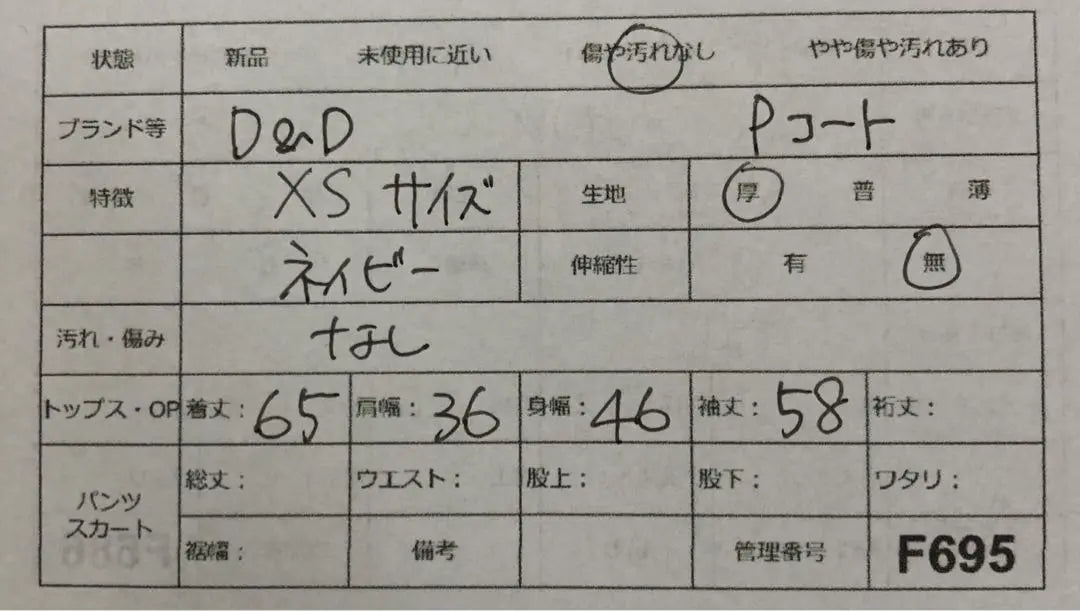 状態 新品 未使用に近い 傷や汚れなし やや傷や汚れあり
ブランド等 D&D Pコート
特徴 XS サイズ 生地 厚 普 薄
ネイビー 伸縮性 有 無
汚れ・傷み なし
トップス・OP 着丈：65 肩幅：36 身幅：46 袖丈：58 裄丈：
パンツ
スカート
総丈： ウエスト： 股上： 股下： ワタリ：
裾幅： 備考 管理番号 F695